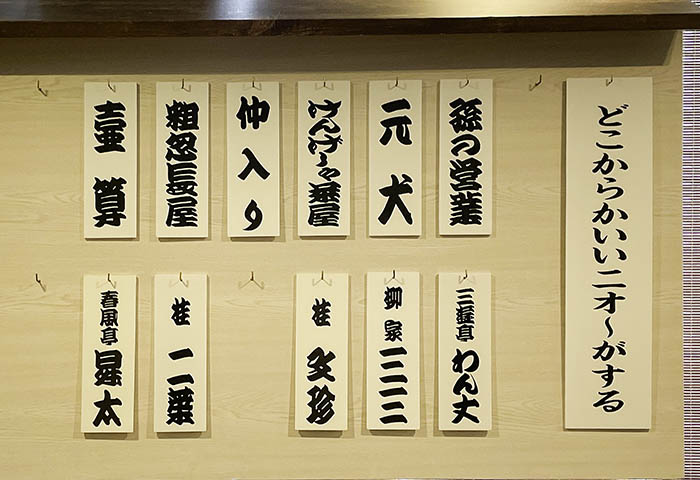 どこからかいいニオ〜がする
孫の営業
元犬
けんげしゃ茶屋
仲入り
粗忽長屋
壷算
三遊亭わん丈
柳家一二三
桂文珍
桂二葉
春風亭昇太